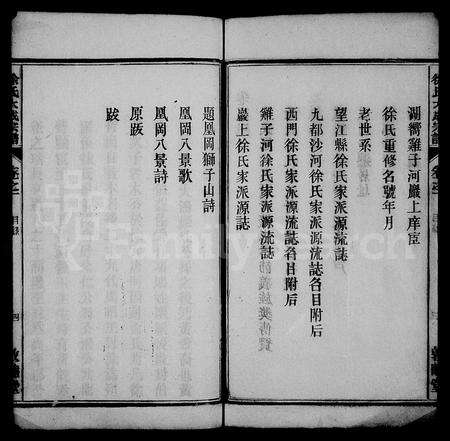 湖嚮雞子河巖上庠宦
徐氏重修名號年月
老世系
望江縣徐氏家派源流誌
九都沙河徐氏家派源流誌各目附后
西門徐氏家派源流誌各目附后
雞子河徐氏家派源流誌
巖上徐氏家派源誌
題凰岡獅子山詩
凰岡八景歌
凰岡八景詩
原跋
跋
徐氏大成宗譜
卷之一
目錄
四
敦睦堂